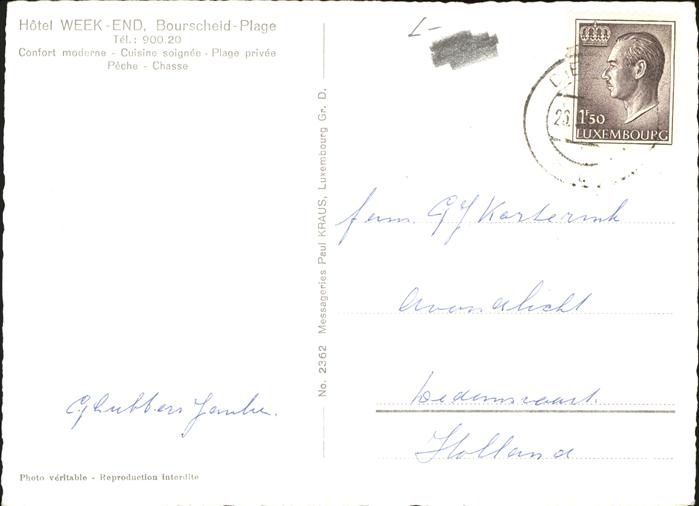 Hôtel WEEK-END, Bourscheid-Plage
Tél.: 900.20
Confort moderne - Cuisine soignée - Plage privée
Pêche - Chasse
1F50
LUXEMBOURG
No. 2362 Messageries Paul KRAUS, Luxembourg Gr. D.
fam. G J Korterink
Avondlicht
Dedemsvaart
Holland
G Lubbers
Photo véritable - Reproduction interdite